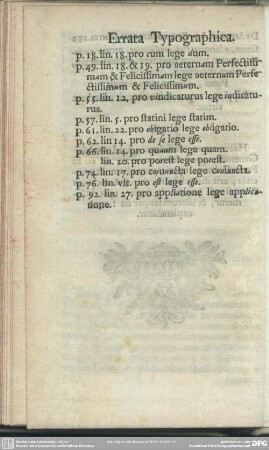 Errata Typographica.
p. 18. lin. 18. pro cum lege dum.
p. 49. lin. 18. & 19. pro aeternam Perfectissi-
mam & Felicissimam lege aeternam Perfe-
ctissimam & Felicissimam.
p. 55. lin. 12. pro vindicaturus lege iudicatu-
rus.
p. 57. lin. 5. pro statini lege statim.
p. 61. lin. 22. pro obigatio lege obligatio.
p. 62. lin 14. pro de se lege esse.
p. 66. lin. 14. pro quaum lege quam.
lin. 20. pro porest lege potest.
p. 74. lin. 17. pro lege coniuncta.
p. 76. lin. vlt. pro est lege esse.
p. 92. lin. 27. pro lege applica-
tione.